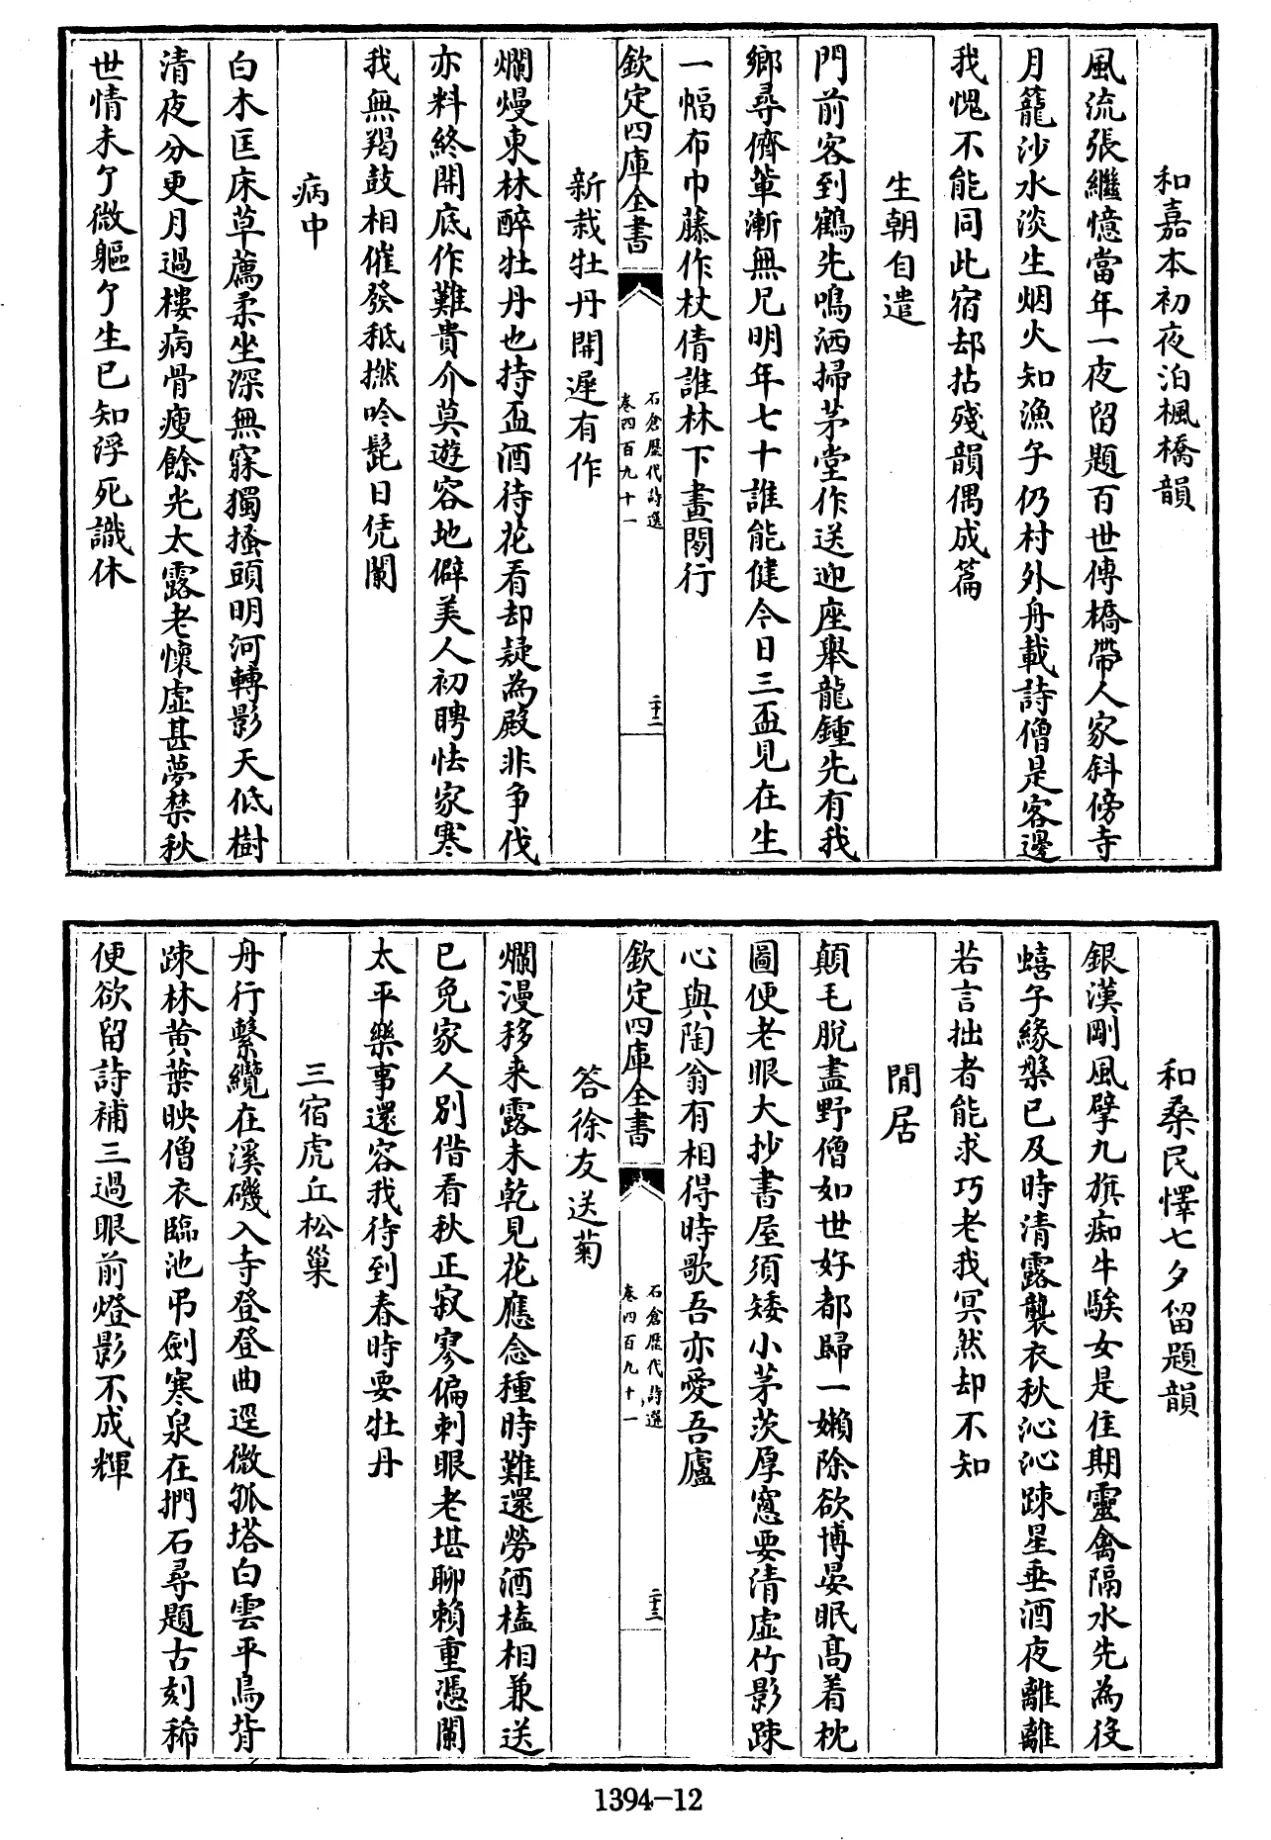 和嘉本初夜泊楓橋韻
風流張繼憶當年一夜留題百世傳橋帶人家斜傍寺
月籠沙水淡生烟火知漁子仍村外舟載詩僧是客邊
我愧不能同此宿却拈殘韻偶成篇
生朝自遣
門前客到鶴先鳴洒掃茅堂作送迎座舉龍鍾先有我
鄉尋儕輩漸無兄明年七十誰能健今日三盃見在生
一幅布巾藤作杖倩誰林下畫閒行
欽定四庫全書
石倉歷代詩選
卷四百九十一
二十二
新栽牡丹開遲有作
爛熳東林醉牡丹也持盃酒待花看却疑為殿非争伐
亦料終開底作難貴介莫遊容地僻美人初聘怯家寒
我無羯鼓相催發秪撚吟髭日凭闌
病中
白木匡床草薦柔坐深無寐獨搔頭明河轉影天低樹
清夜分更月過樓病骨瘦餘光太露老懷虛甚夢禁秋
世情未了微軀了生已知浮死識休
和桑民懌七夕留題韻
銀漢剛風擘九旗痴牛騃女是佳期靈禽隔水先為役
蟢子緣槃已及時清露襲衣秋沁沁踈星垂酒夜離離
若言拙者能求巧老我冥然却不知
閒居
顛毛脱盡野僧如世好都歸一嬾除欲博晏眠髙着枕
圖便老眼大抄書屋須矮小茅茨厚窻要清虛竹影踈
心與陶翁有相得時歌吾亦愛吾廬
欽定四庫全書
石倉歷代詩選
卷四百九十一
二十三
答徐友送菊
爛漫移来露未乾見花應念種時難還勞酒榼相兼送
已免家人别借看秋正寂寥偏刺眼老堪聊賴重憑闌
太平樂事還容我待到春時要牡丹
三宿虎丘松巢
舟行繫纜在溪磯入寺登登曲逕微孤塔白雲平鳥背
踈林黄葉映僧衣臨池弔劍寒泉在捫石尋題古刻稀
便欲留詩補三過眼前燈影不成輝
1394-12